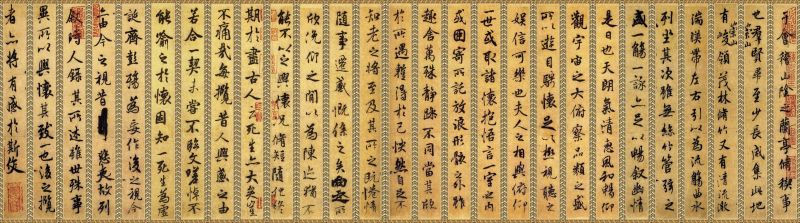 于會稽山陰之蘭亭脩禊事
也羣賢畢至少長咸集此地
有崇山峻領茂林脩竹又有清流激
湍暎帶左右引以為流觴曲水
列坐其次雖無絲竹管絃之
盛一觴一詠亦足以暢敘幽情
是日也天朗氣清惠風和暢仰
觀宇宙之大俯察品類之盛
所以遊目騁懷足以極視聽之
娛信可樂也夫人之相與俯仰
一世或取諸懷抱悟言一室之內
或因寄所託放浪形骸之外雖
趣舍萬殊靜躁不同當其欣
於所遇暫得於己快然自足不
知老之將至及其所之既惓情
隨事遷感慨係之矣向之所
欣俛仰之閒以為陳迹猶不
能不以之興懷況脩短隨化終
期於盡古人云死生亦大矣豈
不痛哉每攬昔人興感之由
若合一契未嘗不臨文嗟悼不
能喻之於懷固知一死生為虛
誕齊彭殤為妄作後之視今
亦由今之視昔悲夫故列
敘時人錄其所述雖世殊事
異所以興懷其致一也後之攬
者亦將有感於斯文